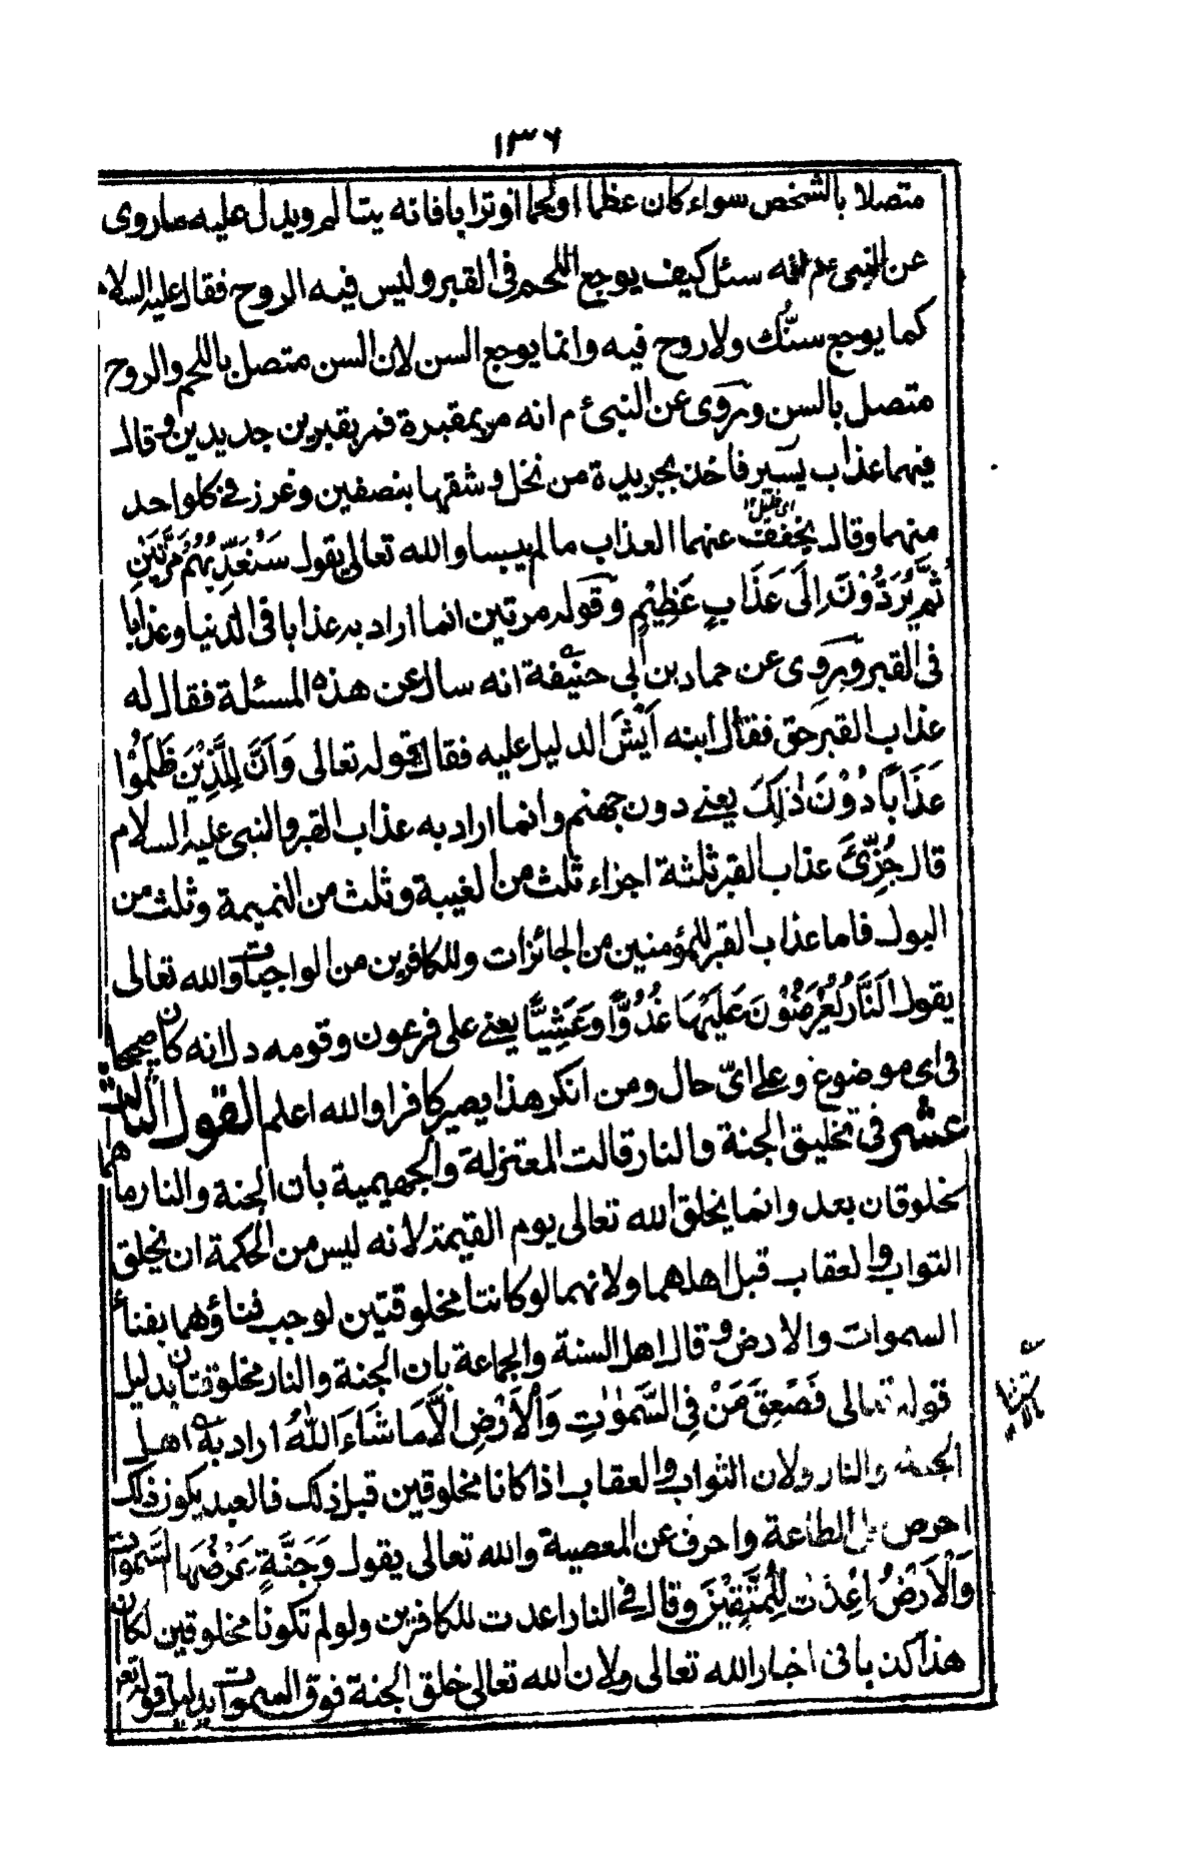 ١٣٦
متصلا بالشخص سواء كان عظما او لحما او ترابا فانه يتالم ويدل عليه ماروى
عن النبى عم انه سئل كيف يوجع اللحم فى القبر وليس فيه الروح فقال عليه السلام
كما يوجع سنّك ولا روح فيه وانما يوجع السن لان السن متصل باللحم والروح
متصل بالسن ومروى عن النبىء م انه مر بمقبرة فمر بقبرين جديدين وقال
فيهما عذاب يسير فاخذ بجريدة من نخل وشقها بنصفين وغرز فى كلواحد
منهما وقال يخفف عنهما العذاب مالم ييبسا والله تعالى يقول سَنُعَذِّبُهُمْ مَرَّتَيْنِ
ثُمَّ يُرَدُّوْنَ اِلَى عَذَابٍ عَظِيْمٍ وقوله مرتين انما اراد به عذابا فى الدنيا وعذابا
فى القبر ومروى عن حماد بن ابى حنيفة انه سال عن هذه المسئلة فقال له
عذاب القبر حق فقال ابنه اَيْشَ الدليل عليه فقال قوله تعالى وَاَنَّ لِلَّذِيْنَ ظَلَمُوْا
عَذَابًا دُوْنَ ذٰلِكَ يعنے دون جهنم وانما اراد به عذاب القبر والنبى عليه السلام
قال جُزِّئَ عذاب القبر ثلثة اجزاء ثلث من الغيبة وثلث من النميمة وثلث من
البول فاما عذاب القبر للمؤمنين من الجائزات وللكافرين من الواجبات والله تعالى
يقول اَلنَّارُ يُعْرَضُوْنَ عَلَيْهَا غُدُوًّا وَعَشِيًّا يعنے على فرعون وقومه دل انه كان صحيحا
فى اى موضوع وعلے اىّ حال ومن انكر هذا يصير كافرا والله اعلم القول الثالث
عشر فى تخليق الجنة والنار قالت المعتزلة والجهيمية بان الجنة والنار ما هما
مخلوقان بعد وانما يخلق الله تعالى يوم القيمة لانه ليس من الحكمة ان يخلق
الثواب والعقاب قبل اهلهما ولانهما لو كانتا مخلوقتين لوجب فناؤهما بفناء
السموات والارض وقال اهل السنة والجماعة بان الجنة والنار مخلوقتان بدليل
قوله تعالى فَصَعِقَ مَنْ فِى السَّمٰوٰتِ وَالْاَرْضِ اِلَّا مَا شَاءَ اللّٰهُ اراد به اهل
الجنة والنار ولان الثواب والعقاب اذا كانا مخلوقين قبل ذلك فالعبد يكون ذلك
احرص على الطاعة واحرف عن المعصية والله تعالى يقول وَجَنَّةٍ عَرْضُهَا السَّمٰوٰتُ
وَالْاَرْضُ اُعِدَّتْ لِلْمُتَّقِيْنَ وقال فى النار اعدت للكافرين ولو لم تكونا مخلوقين لكان
هذا كذبا فى اخبار الله تعالى ولان الله تعالى خلق الجنة فوق السموات بدليل قوله تعم